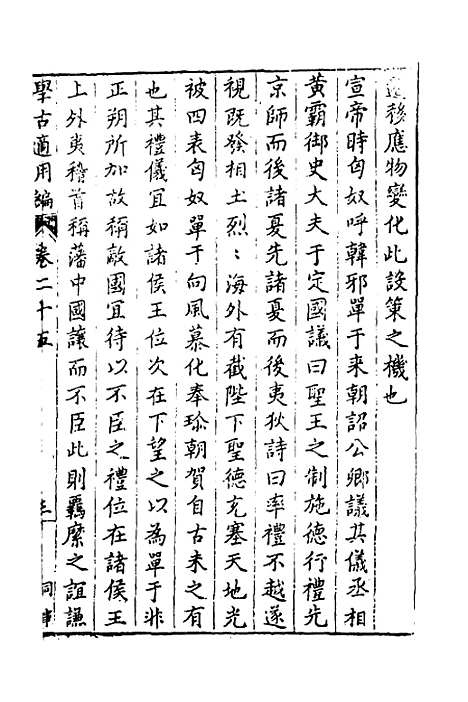 移應物變化此設策之機也
宣帝時匈奴呼韓邪單于来朝詔公卿議其儀丞相
黃霸御史大夫于定國議曰聖王之制施德行禮先
京師而後諸夏先諸夏而後夷狄詩曰率禮不越遂
視既發相土烈〻海外有截陛下聖德充塞天地光
被四表匈奴單于向風慕化奉珎朝賀自古未之有
也其禮儀宜如諸侯王位次在下望之以為單于非
正朔所加故稱敵國宜待以不臣之禮位在諸侯王
上外夷稽首稱藩中國讓而不臣此則羈縻之誼謙
學古適用編 卷二十五 三